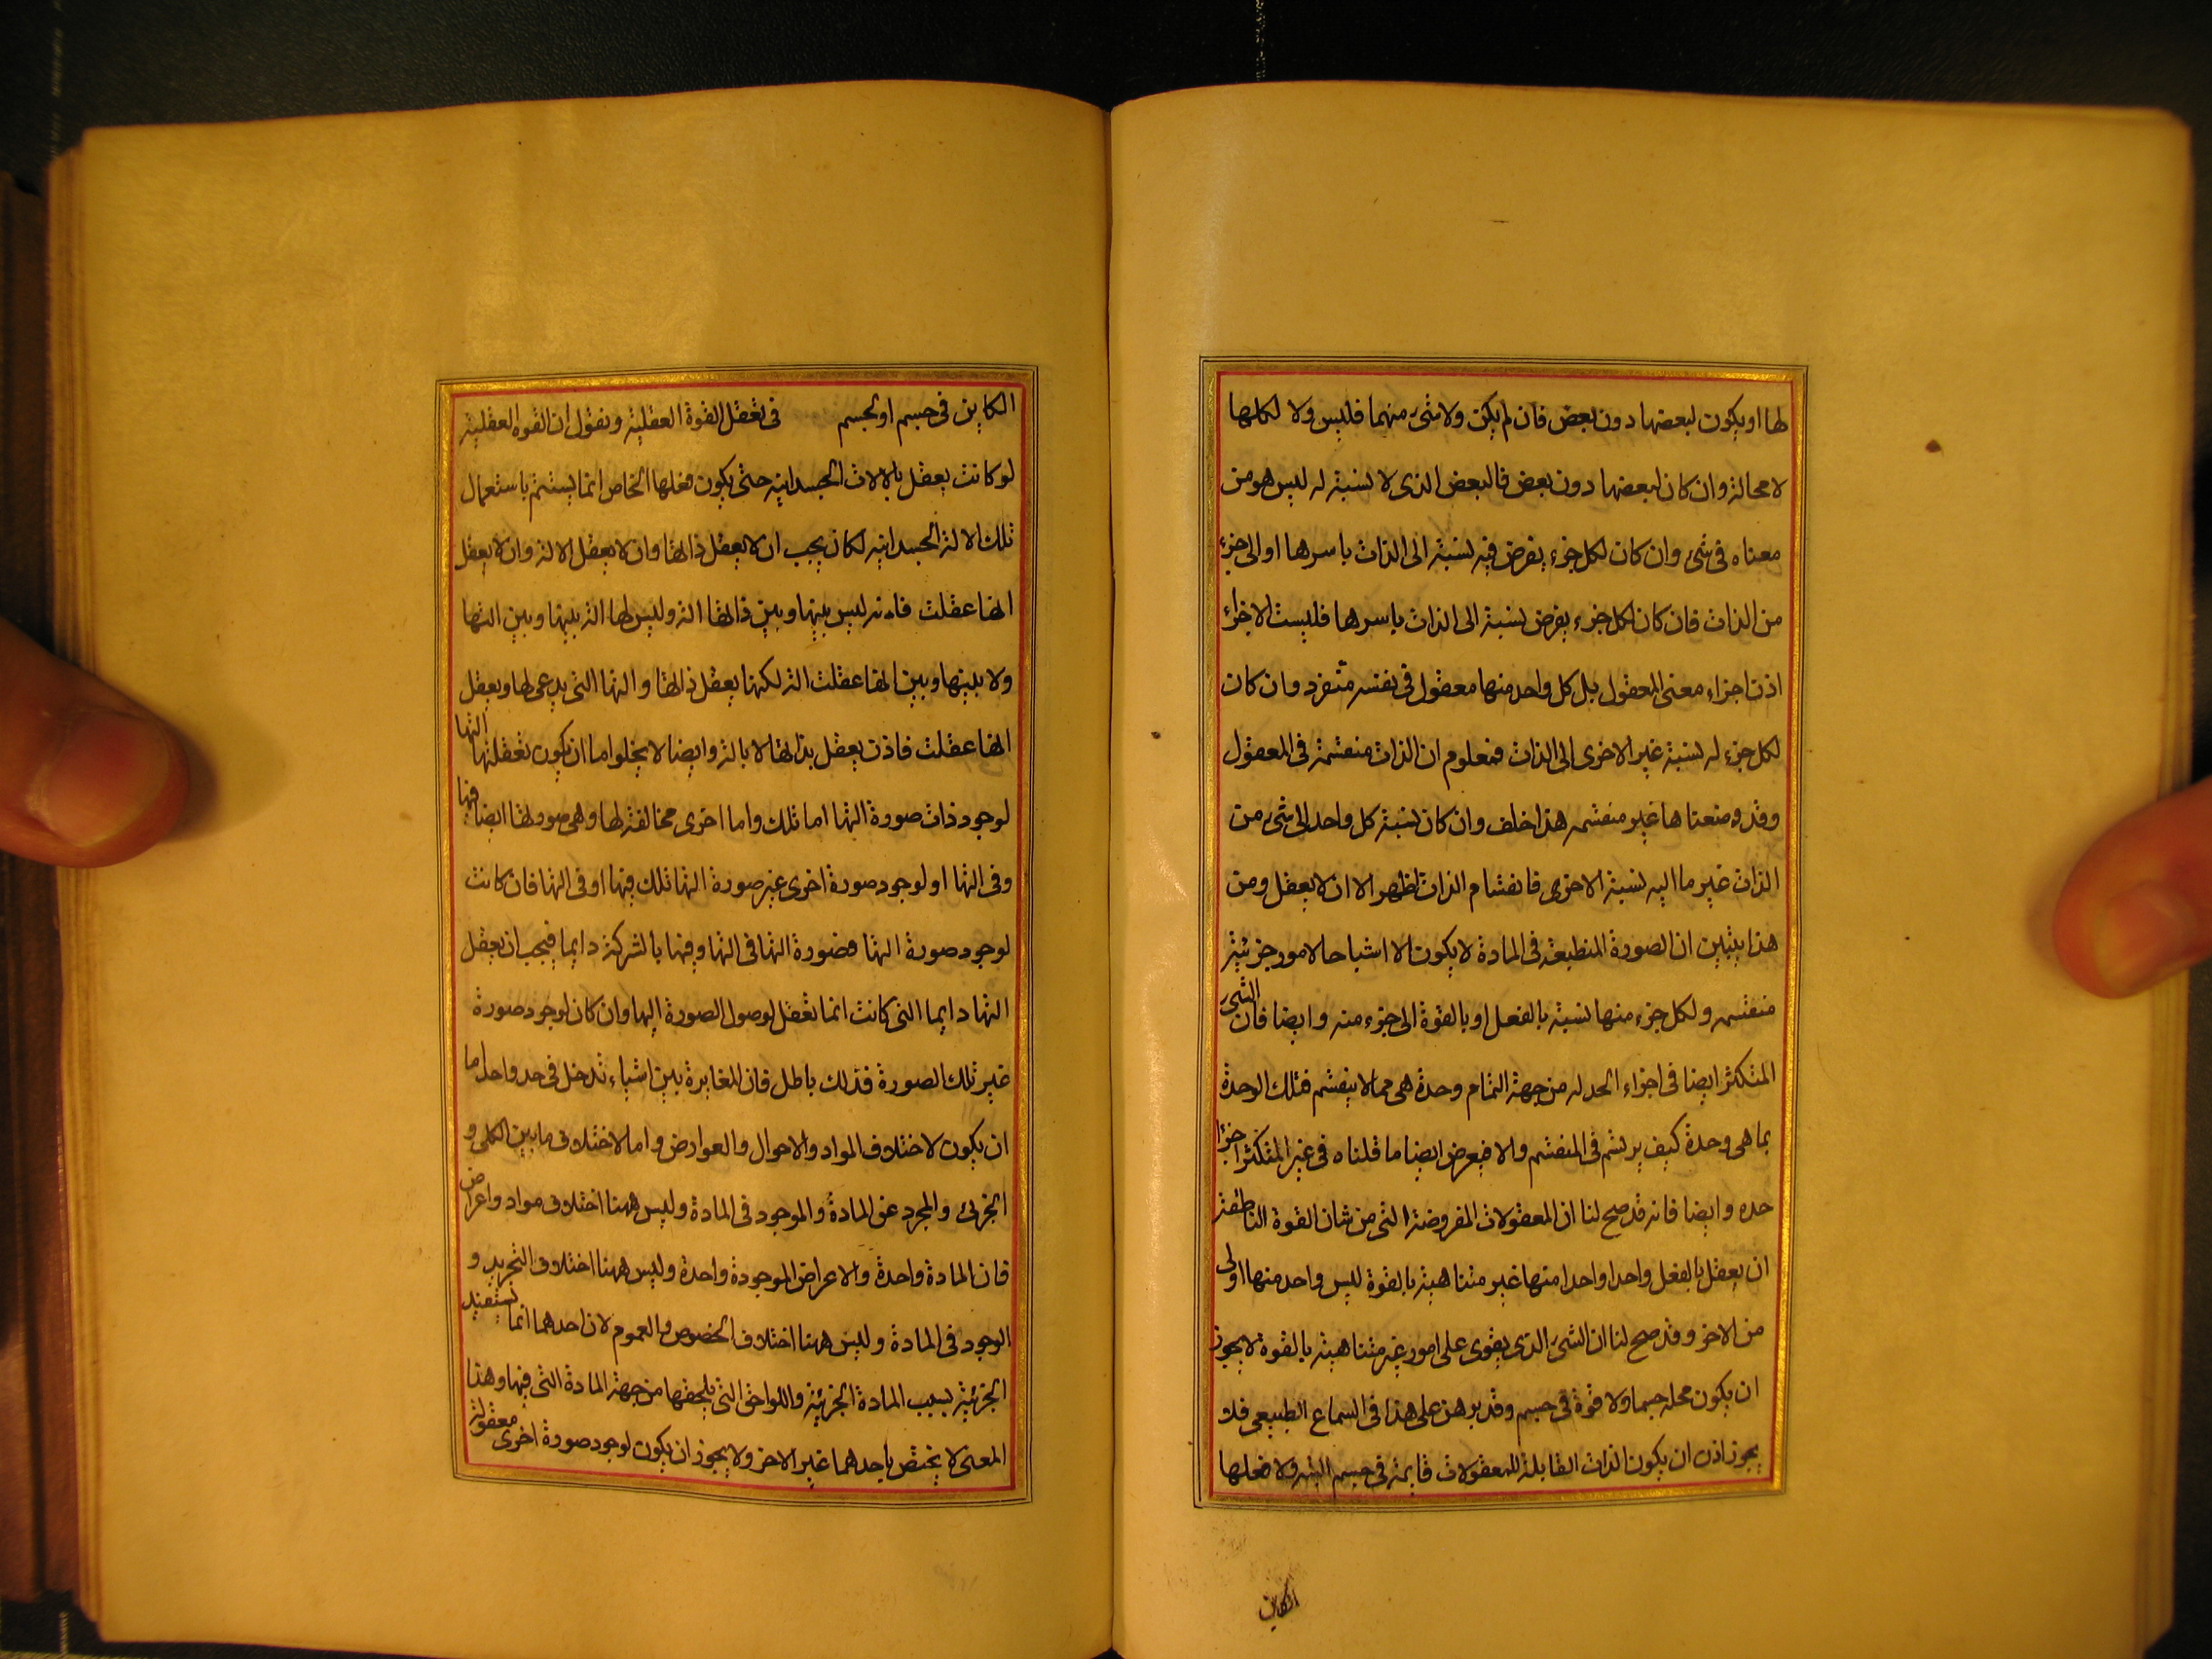 لها او يكون لبعضها دون بعض فان لم يكن ولا شىء منهما فليس ولا لكلها
لا محالة وان كان لبعضها دون بعض فالبعض الذى لا نسبة له ليس هو من
معناه فى شىء وان كان لكل جزء يفرض فيه نسبة الى الذات باسرها او الى جزء
من الذات فان كان لكل جزء يفرض نسبة الى الذات باسرها فليست الاجزاء
اذن اجزاء معنى المعقول بل كل واحد منها معقول فى نفسه مفرد وان كان
لكل جزء له نسبة غير الاخرى الى الذات فمعلوم ان الذات منقسمة فى المعقول
وقد وضعناها غير منقسمه هذا خلف وان كان نسبة كل واحد الى شىء من
الذات غير ما اليه نسبة الاخرى فانقسام الذات اظهر الا ان لا يعقل ومن
هذا يتبين ان الصورة المنطبعة فى المادة لا يكون الا اشباحا لامور جزئية
منقسمه ولكل جزء منها نسبة بالفعل او بالقوة الى جزء منه وايضا فان الشىء
المتكثر ايضا فى اجزاء الحد له من جهة التمام وحدة هى مما لا ينقسم فتلك الوحدة
بما هى وحدة كيف يرتسم فى المنقسم والا فيعرض ايضا ما قلناه فى غير المتكثر اجزا
حده وايضا فانه قد صح لنا ان المعقولات المفروضة التى من شان القوة الناطقة
ان يعقل بالفعل واحدا واحدا منها غير متناهية بالقوة ليس واحد منها اولى
من الاخر وقد صح لنا ان الشىء الذى يقوى على امور غير متناهية بالقوة لا يجوز
ان يكون محله جسما ولا قوة فى جسم وقد برهن على هذا فى السماع الطبيعى فلا
يجوز اذن ان يكون الذات القابلة للمعقولات قايمة فى جسم البته ولا فعلها
الكاين
الكاين فى جسم او لجسم فى تعقل القوة العقلية ونقول ان القوه العقلية
لو كانت يعقل بالالات الجسدانيه حتى يكون فعلها الخاص انما يستتم باستعمال
تلك الالة الجسدانيه لكان يجب ان لا يعقل ذاتها وان لا يعقل الالة وان لا يعقل
انها عقلت فانه ليس بينها وبين ذاتها الة وليس لها الة بينها وبين التها
ولا بينها وبين انها عقلت الة لكنها يعقل ذاتها والتها التى يدعى لها ويعقل
انها عقلت فاذن يعقل بذاتها لا بالة وايضا لا يخلوا اما ان يكون تعقلها التها
لوجود ذات صورة التها اما تلك واما اخرى مخالفة لها وهى صورتها ايضا فيها
وفى التها او لوجود صورة اخرى غير صورة التها تلك فيها او فى التها فان كانت
لوجود صورة التها فصورة التها فى التها وفيها بالشركة دايما فيجب ان يعقل
التها دايما التى كانت انما تعقل لوصول الصورة اليها وان كان لوجود صورة
غير تلك الصورة فذلك باطل فان المغايرة بين اشياء تدخل فى حد واحد اما
ان يكون لاختلاف المواد والاحوال والعوارض واما لاختلاف ما بين الكلى و
الجزئى والمجرد عن المادة والموجود فى المادة وليس ههنا اختلاف مواد واعراض
فان المادة واحدة والاعراض الموجودة واحدة وليس ههنا اختلاف التجريد و
الوجود فى المادة وليس ههنا اختلاف الخصوص والعموم لان احدهما انما يستفيد
الجزئية بسبب المادة الجزئية واللواحق التى يلحقها من جهة المادة التى فيها وهذا
المعنى لا يختص باحدهما غير الاخر ولا يجوز ان يكون لوجود صورة اخرى معقولة